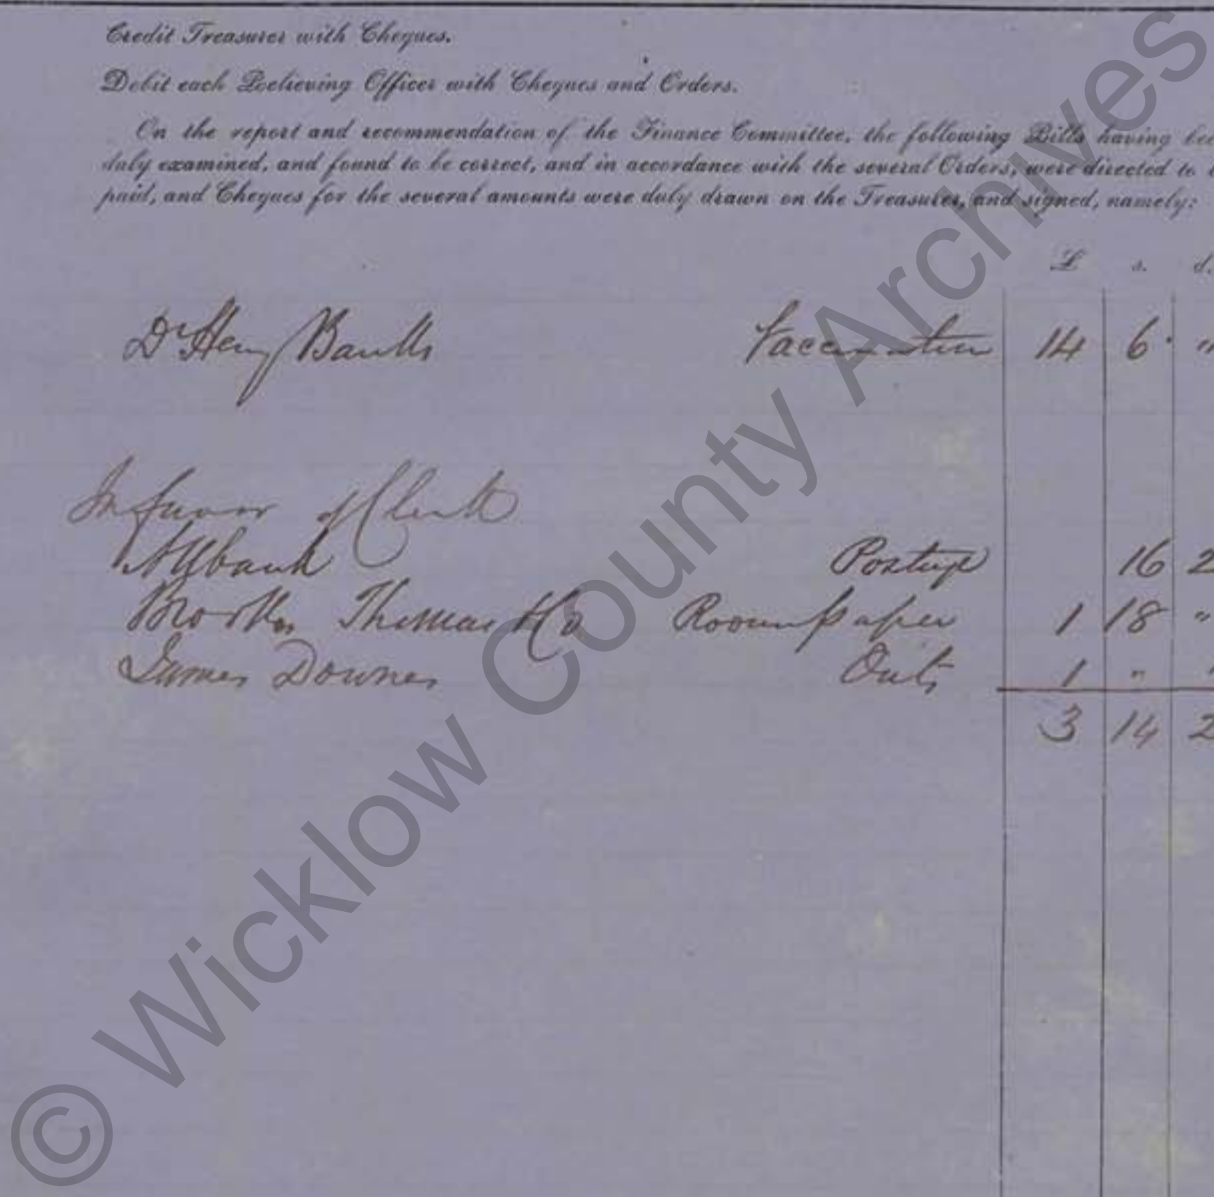 Credit Treasurer with Cheques.
Debit each Relieving Officer with Cheques and Orders.
On the report and recommendation of the Finance Committee, the following Bills having bee
duly examined, and found to be correct, and in accordance with the several Orders, were directed to b
paid, and Cheques for the several amounts were duly drawn on the Treasurer, and signed, namely:
£ s. d.
Dr Henry Banks Vaccination 14 6 "
In favor of Clerk
Postage 16 2
Brooks Thomas & Co Room paper 1 18 "
James Downes 1 " "
3 14 2
© Wicklow County Archives